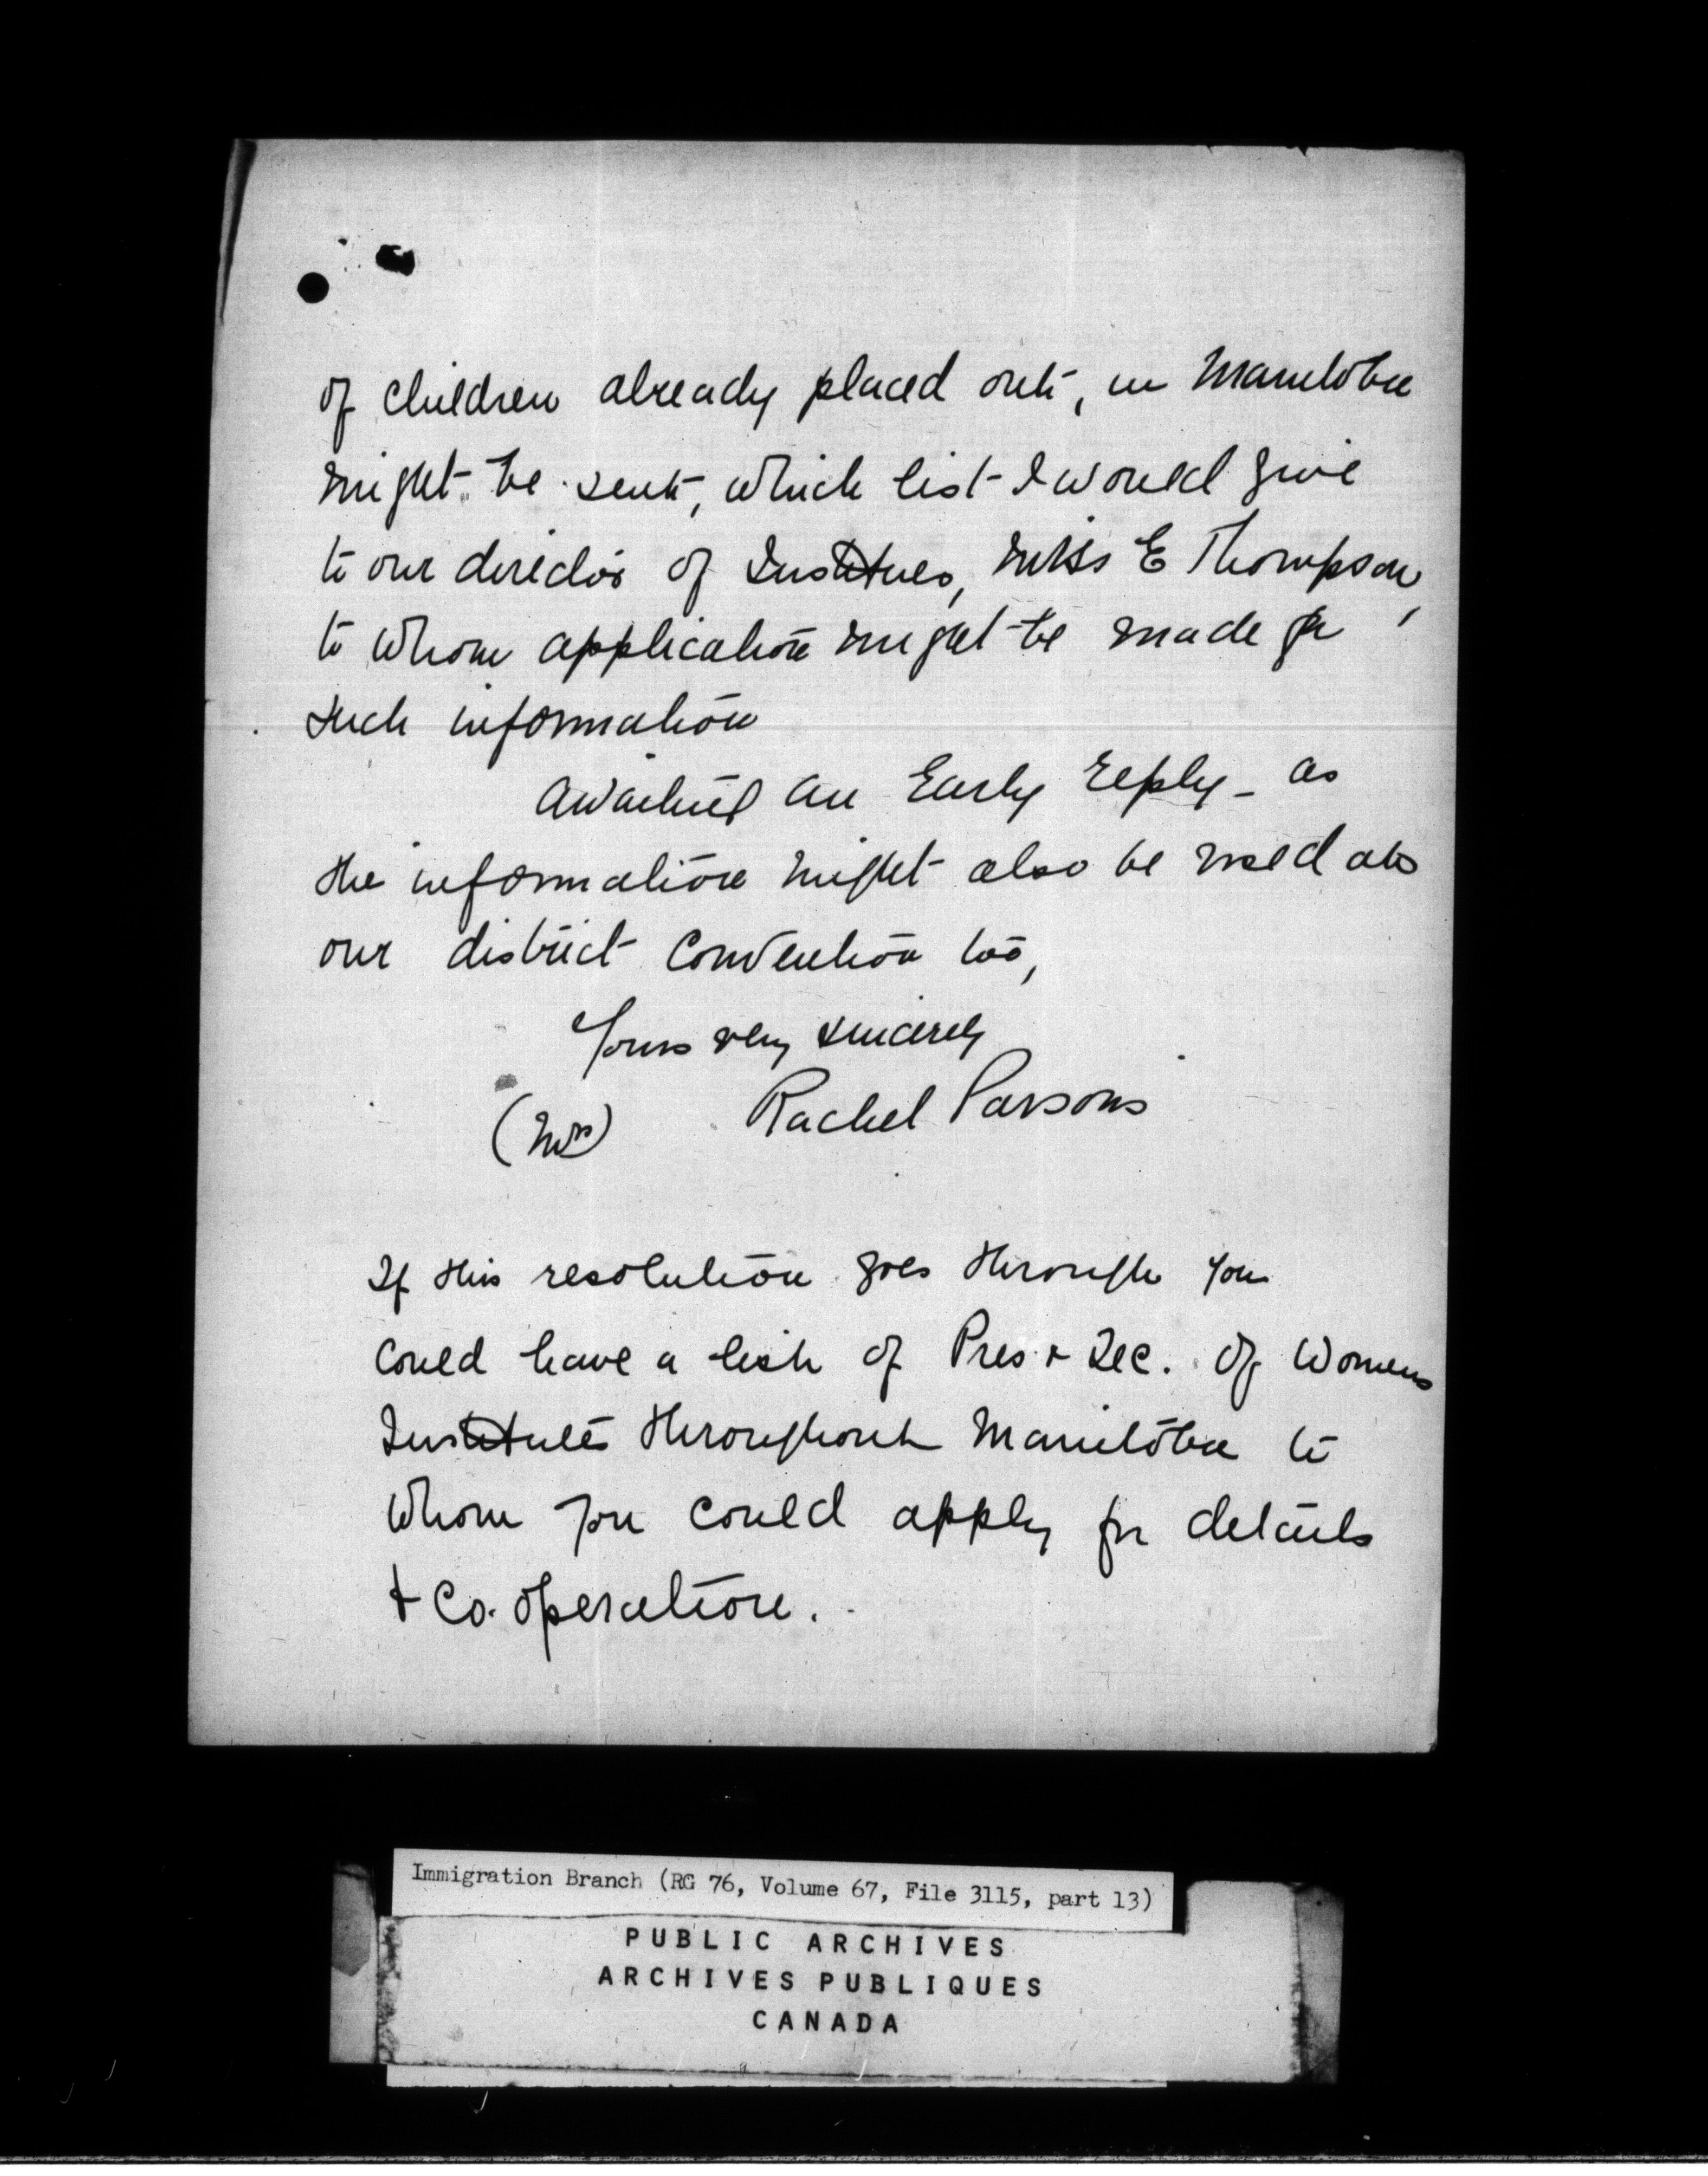 of children already placed out, in Manitoba
might be sent, which list I would give
to our director of Institues, Miss E Thompson,
to whom application might be made for
such information
Awaiting an Early reply - as
the information might also be used at
our district Convention too,
Yours very sincerely
(Mrs) Rachel Parsons
If this resolution goes through you
could have a list of Pres & Sec. of Womens
Institutes throughout Manitoba to
whom you could apply for details
& Co. operation.
Immigration Branch (RG 76, Volume 67, File 3115, part 13)
PUBLIC ARCHIVES
ARCHIVES PUBLIQUES
CANADA